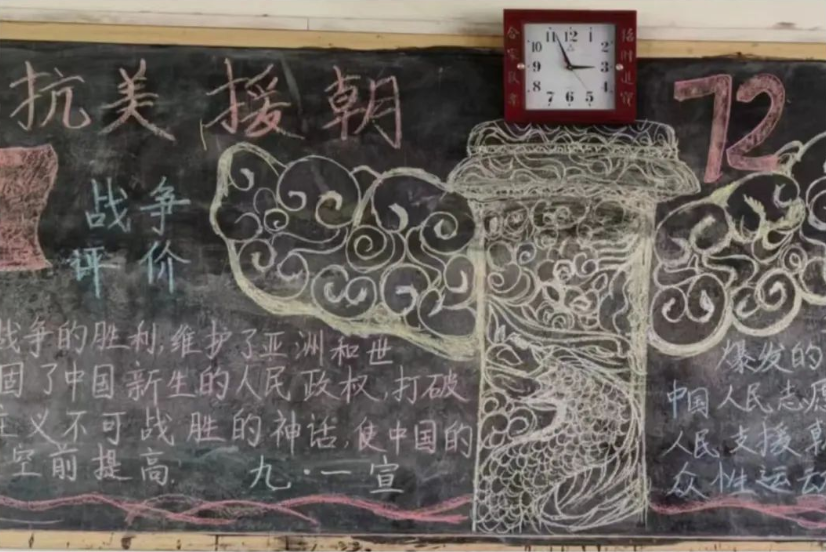 抗美援朝
72
战争
评价
战争的胜利,维护了亚洲和世
固了中国新生的人民政权,打破
主义不可战胜的神话,使中国的
空前提高.
九·一宣
爆发的
中国人民志愿
人民支援朝
众性运动
11 12 1
10 2
9 3
8 4
7 6 5